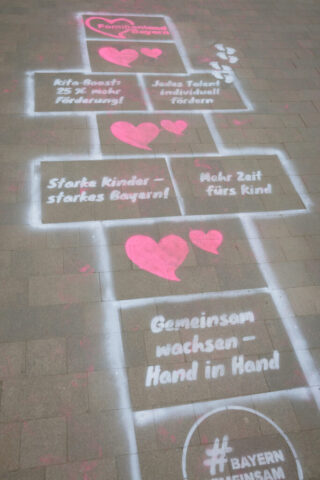 Familienland
Bayern
Kita-Boost:
25 % mehr
Förderung!
Jedes Talent
individuell
fördern
Starke Kinder –
starkes Bayern!
Mehr Zeit
fürs Kind
Gemeinsam
wachsen –
Hand in Hand
#
BAYERN
GEMEINSAM